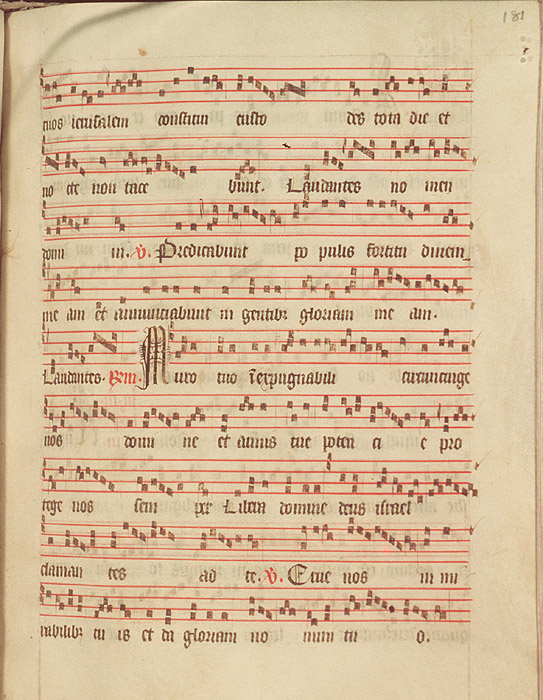 181
tuos ierusalem constitui custo des tota die et
no cte non tace bunt. Laudantes no men
domi ni. V. Predicabunt po pulis fortitu dinem
me am et annunciabunt in gentibz gloriam me am.
Laudantes. Muro tuo inexpugnabili circumcinge
nos domi ne et armis tue poten ci e pro
tege nos sem per Libera domine deus israel
claman tes ad te. V. Erue nos in mi
rabilibz tu is et da gloriam no mini tu o.